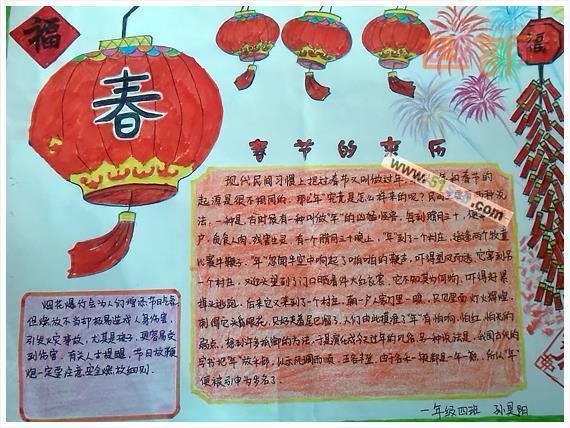 福
春
福
春节的来历
www.51sst.com
现代民间习惯上把过春节又叫做过年
起源是很不相同的。那么"年"究竟是怎么样来的呢?民间
法,一种是:古时候有一种叫做"年"的凶猛怪兽,每到腊月三十,
户,觅食人肉,残害生灵,有一个腊月三十晚上,"年"到了一个村庄,适逢两个牧童
比赛牛鞭子。"年"忽闻半空中响起了啪啪的鞭声,吓得望风而逃。它窜到另
一个村庄,又迎头望到了门口晒着件大红衣裳,它不知其为何物,吓得赶紧
掉头逃跑。后来它又来到了一个村庄,朝一户人家门里一瞧,只见里面灯火辉煌
刺得它头昏眼花,只好夹着尾巴溜了。人们由此摸准了"年"有怕响,怕红,怕光的
弱点,想到许多抵御的方法,于是演化成今天过年的风俗。另一种说法是,我国古代的
字书把"年"放禾部,以示风调雨顺,五谷丰登。由于谷禾一般都是一年一熟。所以"年"
便被引申为岁名了。
烟花爆竹会为人们增添节日气氛
但燃放不当却极易造成人身伤害,
引发火灾事故,尤其是孩子,更容易受
到伤害,有关人士提醒,节日放鞭
炮一定要注意安全燃放细则。
一年级四班 孙昊阳